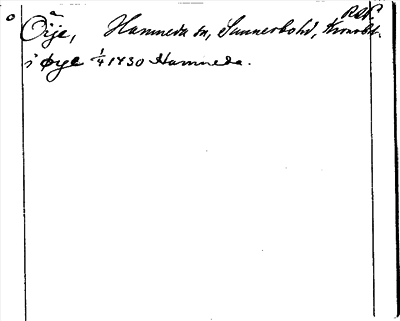 RAP.
Öije, Hamneda sn, Sunnerbohd, Kronobl.
i Øye 1/4 1430 Hamneda.